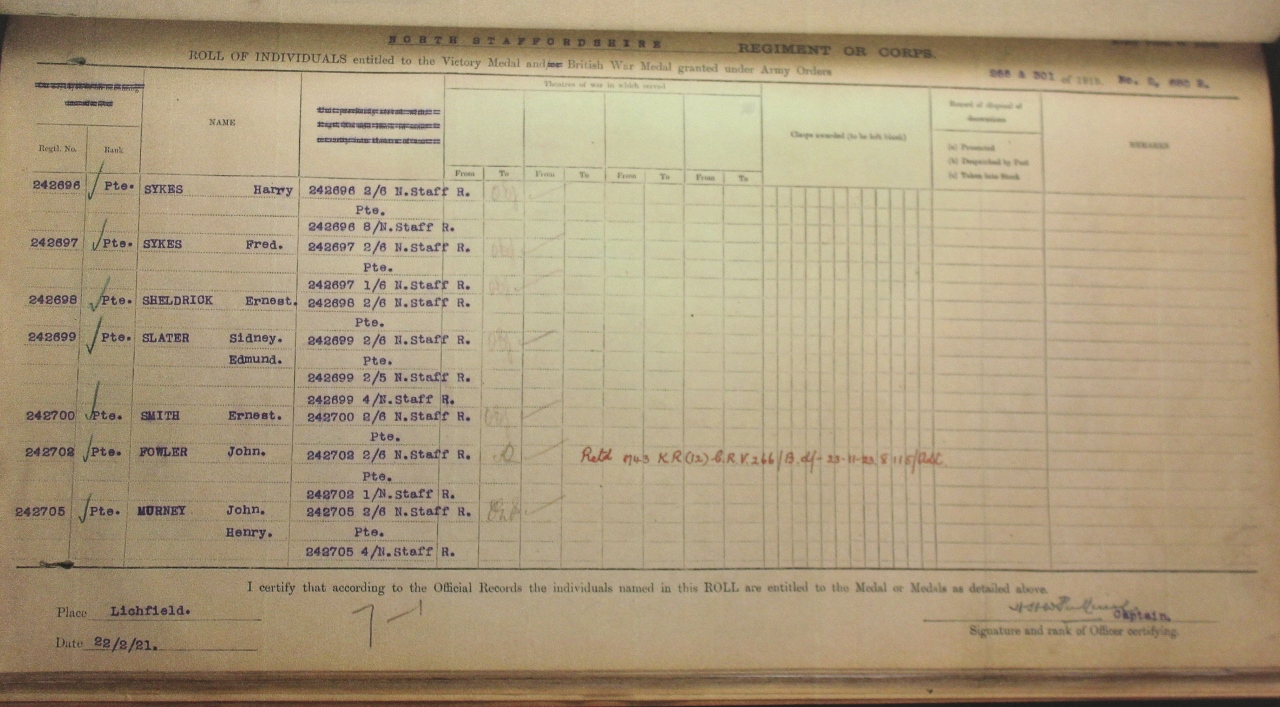 NORTH STAFFORDSHIRE REGIMENT OR CORPS.
ROLL OF INDIVIDUALS entitled to the Victory Medal and/or British War Medal granted under Army Orders
Theatres of war in which served
Clasps awarded (to be left blank)
Record of disposal of decorations
(a) Presented
(b) Despatched by Post
(c) Taken into Stock
REMARKS
NAME
Regtl. No. Rank
From To From To From To From To
242696 Pte. SYKES Harry 242696 2/6 N.Staff R.
Pte.
242696 8/N.Staff R.
242697 Pte. SYKES Fred. 242697 2/6 N.Staff R.
Pte.
242697 1/6 N.Staff R.
242698 Pte. SHELDRICK Ernest. 242698 2/6 N.Staff R.
Pte.
242699 Pte. SLATER Sidney. 242699 2/6 N.Staff R.
Edmund. Pte.
242699 2/5 N.Staff R.
242699 4/N.Staff R.
242700 Pte. SMITH Ernest. 242700 2/6 N.Staff R.
Pte.
242702 Pte. FOWLER John. 242702 2/6 N.Staff R. Retd 1743 K R (12) C.R.V. 266/B
Pte.
242702 1/N.Staff R.
242705 Pte. MURNEY John. 242705 2/6 N.Staff R.
Henry. Pte.
242705 4/N.Staff R.
I certify that according to the Official Records the individuals named in this ROLL are entitled to the Medal or Medals as detailed above.
Place Lichfield.
Captain.
Date 22/2/21.
Signature and rank of Officer certifying.